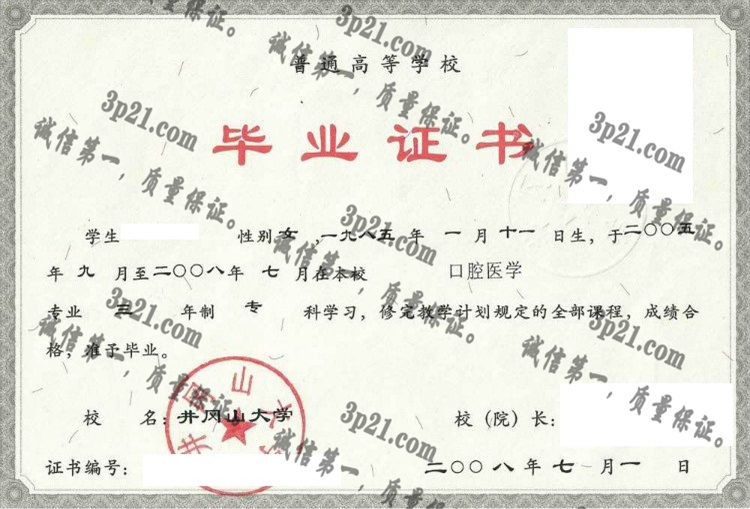 普通高等学校
毕业证书
学生 性别 女,一九八五年 一月十一日生,于二〇〇五
年九月至二〇〇八年七月在本校 口腔医学
专业 三 年制 专 科学习,修完教学计划规定的全部课程,成绩合
格,准予毕业。
校 名:井冈山大学 校(院)长:
证书编号: 二〇〇八年七月一日
井冈山大
3p21.com
诚信第一,质量保证。
3p21.com
诚信第一,质量保证。
3p21.com
诚信第一,质量保证。
3p21.com
诚信第一,质量保证。
3p21.com
诚信第一,质量保证。
3p21.com
诚信第一,质量保证。
3p21.com
诚信第一,质量保证。
3p21.com
诚信第一,质量保证。